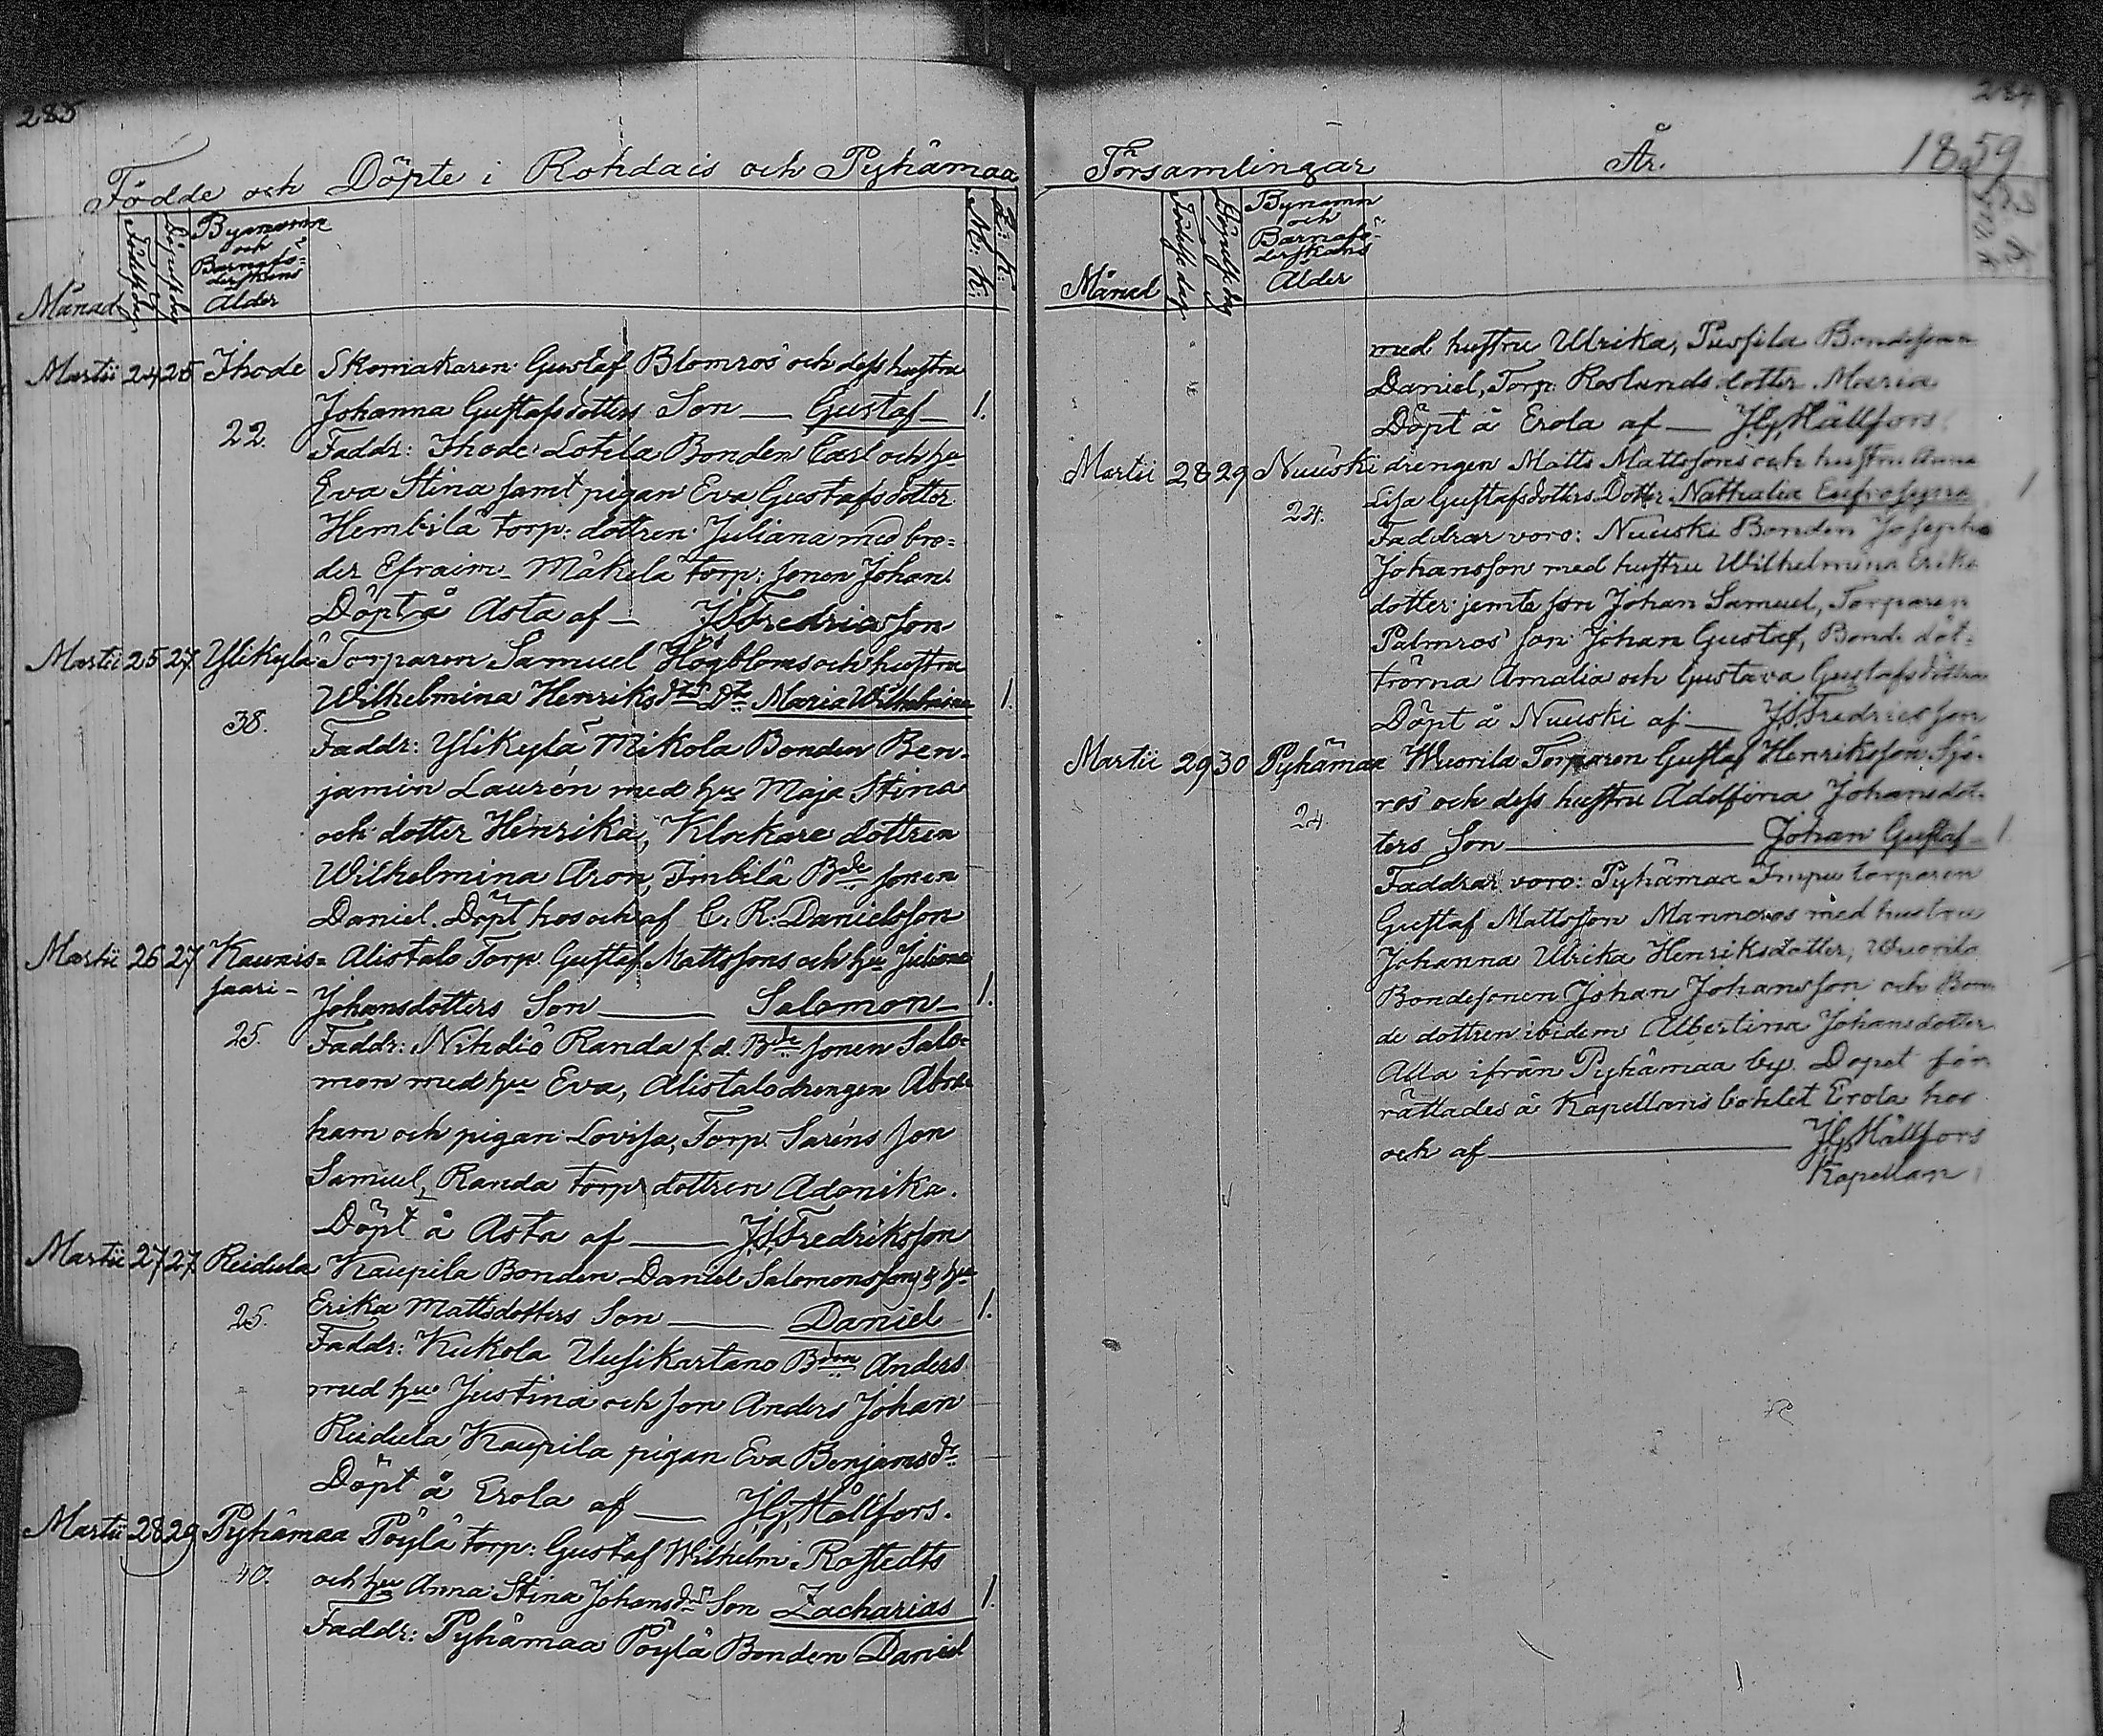 285
Födde och Döpte i Rohdais och Pyhämaa
Månad
Födelsedag
Döpelsedag
Bynamn
och
Barnafö-
derskans
Ålder
M. K.
Martii 24 25 Ihode Skomakaren Gustaf Blomros och dess hustru
Johanna Gustafsdotters Son — Gustaf — 1.
22.
Faddr: Ihode Lotila Bonden Carl och hu
Eva Stina samt pigan Eva Gustafsdotter
Hembilä torp: dottren Juliana med bro=
der Efraim Mäkelä torp: sonen Johan.
Döpt å Asta af — J.S. Fredricsson
Martii 25 27 Ylikylä Torparen Samuel Högbloms och hustru
Wilhelmina Henriksdtrs Dtr Maria Wilhelmina 1.
38.
Faddr: Ylikylä Mikola Bonden Ben-
jamin Laurén med hu Maja Stina
och dotter Henrika, Klockare dottren
Wilhelmina Aron, Imbilä Bde sonen
Daniel. Döpt hos och af C. R. Danielsson
Martii 26 27 Kaunis= Alistalo Torp. Gustaf Mattssons och hu Juliana
saari - Johansdotters Son — Salomon — 1.
25.
Faddr: Nihdiö Randa f.d. Bde sonen Salo-
mon med hu Eva, Alistalo drengen Abra-
ham och pigan Lovisa, Torp. Saréns son
Samuel, Randa torp dottren Adonika.
Döpt å Asta af — J.S. Fredriksson
Martii 27 27 Reidula Kaupila Bonden Daniel Salomonssons & hu
Erika Mattsdotters Son — Daniel 1.
25.
Faddr: Kukola Uusikartano Bden Anders
med hu Justina och son Anders Johan
Reidula Kaupila pigan Eva Benjamsdr
Döpt å Erola af — J.G. Hällfors.
Martii 28 29 Pyhämaa Pöylä torp: Gustaf Wilhelm Rostedts
och hu Anna Stina Johansdrs Son Zacharias 1.
40.
Faddr: Pyhämaa Pöylä Bonden Daniel
284
Församlingar År. 1859
Månad
Födelsedag
Döpelsedag
Bynamn
och
Barnafö-
derskans
Ålder
med hustru Ulrika, Bondesonen
Daniel, Torp: Roslunds dotter Maria
Döpt å Erola af — J.G. Hällfors.
Martii 28 29 Nuuski drengen Matts Mattssons och hustru Anna
Lisa Gustafsdotters Dotter Nathalia Eufrosyna 1
24.
Faddrar voro: Nuuski Bonden Joseph
Johansson med hustru Wilhelmina Eriks
dotter jemte son Johan Samuel, Torparen
Palmros' son Johan Gustaf, Bonde döt-
trörna Amalia och Gustava Gustafsdöttrar
Döpt å Nuuski af — J.S. Fredricsson
Martii 29 30 Pyhämaa Wuorila Torparen Gustaf Henriksson Sjö-
ros och dess hustru Adolfina Johansdot-
ters Son — Johan Gustaf — 1.
24.
Faddrar voro: Pyhämaa Impu torparen
Gustaf Mattsson Manneros med hustru
Johanna Ulrika Henriksdotter, Wuorila
Bondesonen Johan Johansson och Bon-
de dottren ibidem Albertina Johansdotter
Alla ifrån Pyhämaa by. Dopet för-
rättades å Kapellans bohlet Erola hos
och af — J.G. Hällfors
Kapellan